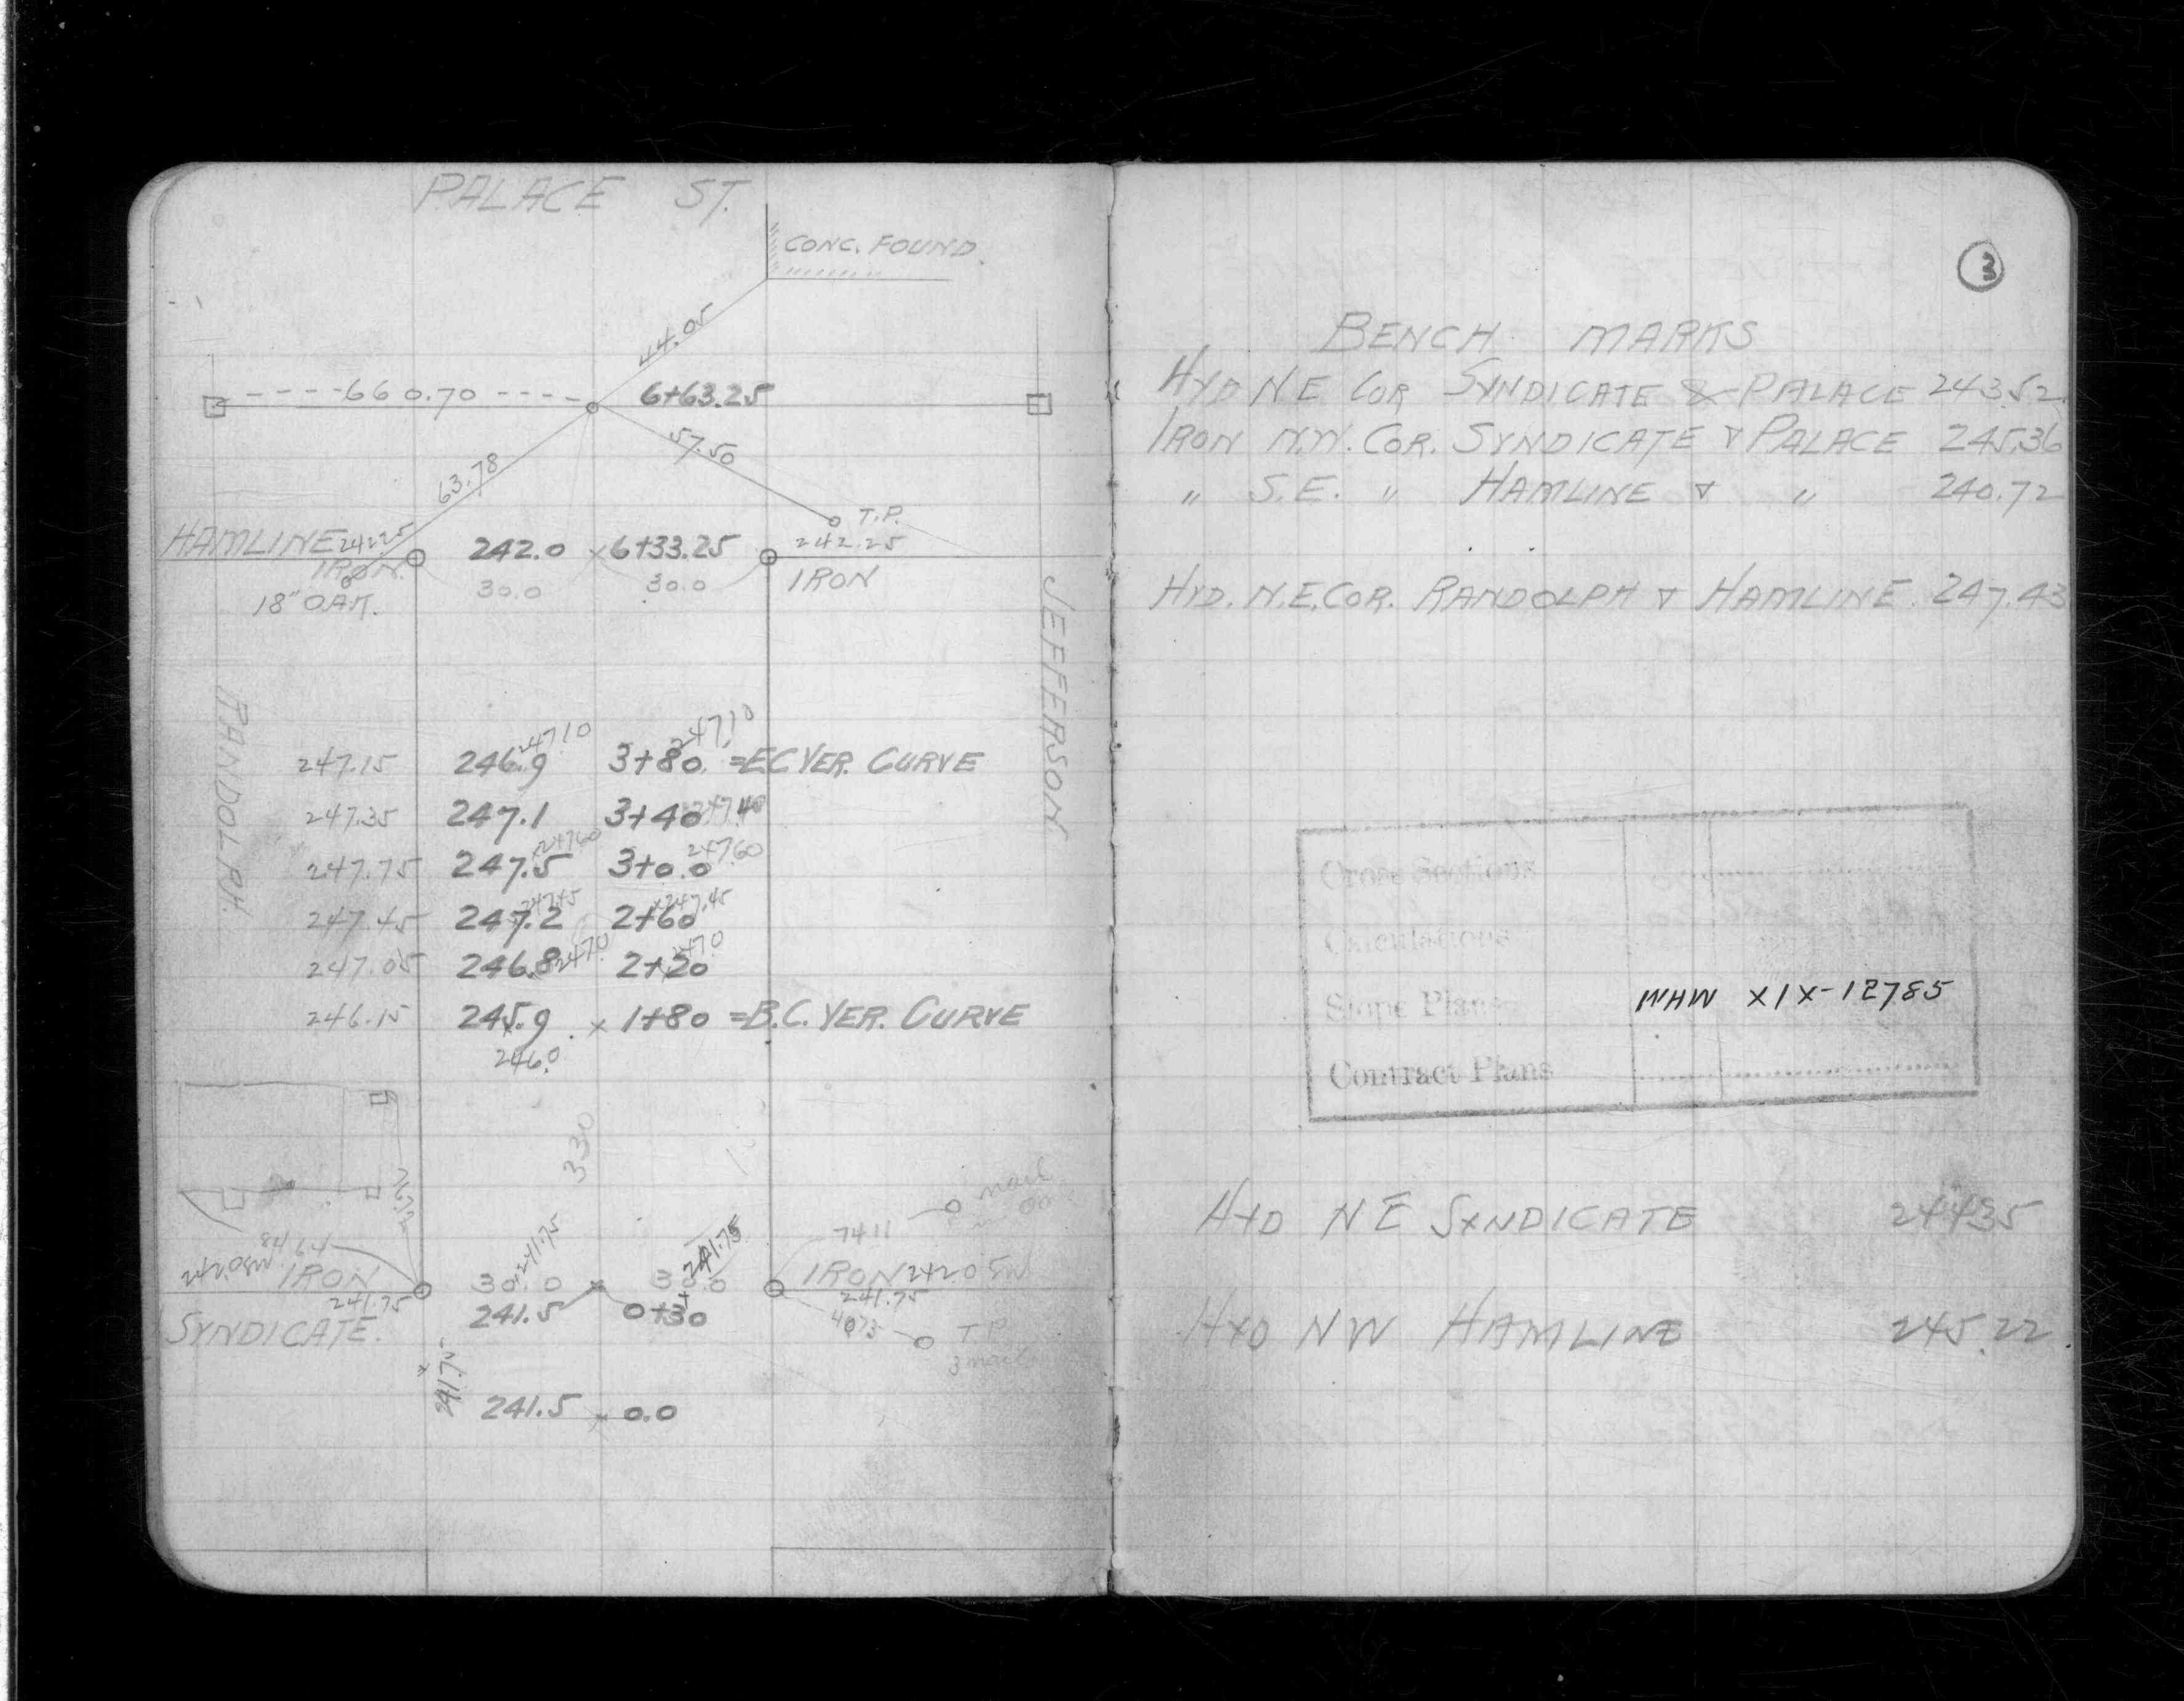 PALACE ST.
CONC. FOUND.
44.05
660.70 6+63.25
57.50
63.78
T.P.
HAMLINE 242.25 242.0 6+33.25 242.25
IRON. 30.0 30.0 IRON
18" OAK.
JEFFERSON
RANDOLPH
247.10 247.10
247.15 246.9 3+80. =EC VER. CURVE
247.35 247.1 3+40 247.40
247.60 247.60
247.75 247.5 3+0.0
247.45 247.45
247.45 247.2 2+60
247.0 247.0
247.05 246.8 2+20
246.15 245.9 x 1+80 =B.C. VER. CURVE
246.0
330
nail
7411
8464
241.75 241.75
IRON 30.0 30.0 IRON 242.0 SW
241.75 241.75
SYNDICATE. 241.5 0+30
T.P.
241.75
241.5 x 0.0
3
BENCH MARKS
HYD N E COR SYNDICATE & PALACE 243.52
IRON N.W. COR. SYNDICATE & PALACE 245.36
" S.E. " HAMLINE & " 240.72
HYD. N.E. COR. RANDOLPH & HAMLINE 247.43
Cross Sections
Calculations
Slope Plans WHW X1X-12785
Contract Plans
HYD N E SYNDICATE 244.35
HYD NW HAMLINE 245.22